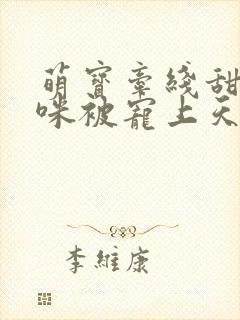 萌寶牽綫甜
咪被寵上天
李維康